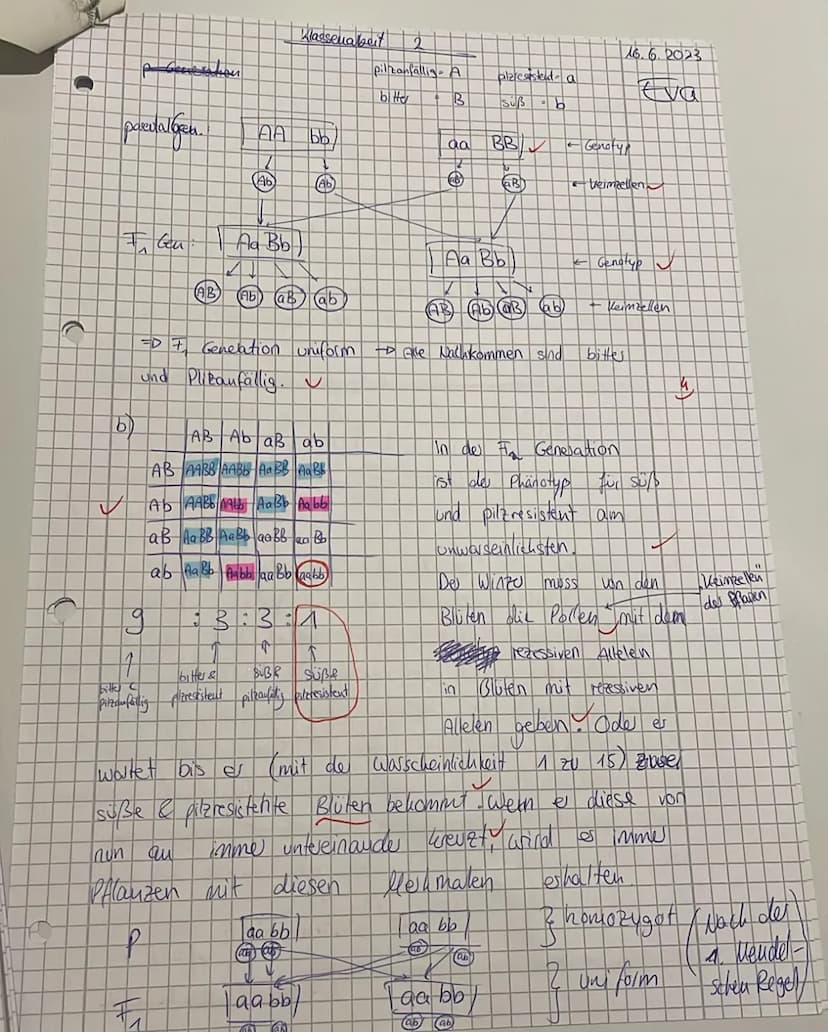 Klassenarbeit 2
16.6.2023
P Generation
pilzanfällig - A pilzresistent - a
bitter - B süß - b
Eva
Parentalgen.
AA bb aa BB ← Genotyp
Ab Ab aB aB ← Keimzellen
F1 Gen: Aa Bb Aa Bb ← Genotyp
AB Ab aB ab AB Ab aB ab ← Keimzellen
=> F1 Generation uniform → alle Nachkommen sind bitter
und Pilzanfällig.
4
b)
AB Ab aB ab
AB AABB AABb AaBB AaBb
Ab AABb AAbb AaBb Aabb
aB AaBB AaBb aaBB aaBb
ab AaBb Aabb aaBb aabb
9 : 3 : 3 : 1
bitter & pilzanfällig
bitter & pilzresistent
süß & pilzanfällig
süße pilzresistent
In der F2 Generation
ist der Phänotyp für süß
und pilzresistent am
unwarseinlichsten.
Der Winzer muss von den
"Keimzellen der Pflanzen"
Blüten die Pollen mit dem
rezessiven Allelen
in Blüten mit rezessiven
Allelen geben. Oder er
wartet bis er (mit der Wasscheinlichkeit 1 zu 15)
süße & pilzresistente Blüten bekommt. Wenn er diese von
nun an immer untereinander kreuzt, wird er immer
Pflanzen mit diesen Merkmalen erhalten.
P aa bb aa bb } homozygot (Nach der
ab ab ab ab 1. Mendel-
F1 aa bb aa bb } uniform schen Regel)
ab ab ab ab